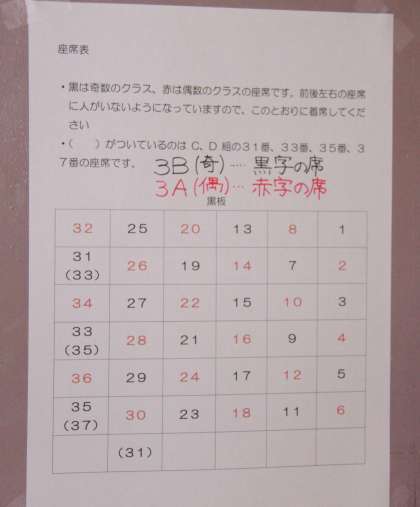 座席表
・黒は奇数のクラス、赤は偶数のクラスの座席です。前後左右の座席
に人がいないようになっていますので、このとおりに着席してくだ
さい
・（　　）がついているのは C、D 組の３１番、３３番、３５番、３
７番の座席です。
3B(奇)‥‥ 黒字の席
3A(偶)… 赤字の席
黒板
32 25 20 13 8 1
31 (33) 26 19 14 7 2
34 27 22 15 10 3
33 (35) 28 21 16 9 4
36 29 24 17 12 5
35 (37) 30 23 18 11 6
(31)